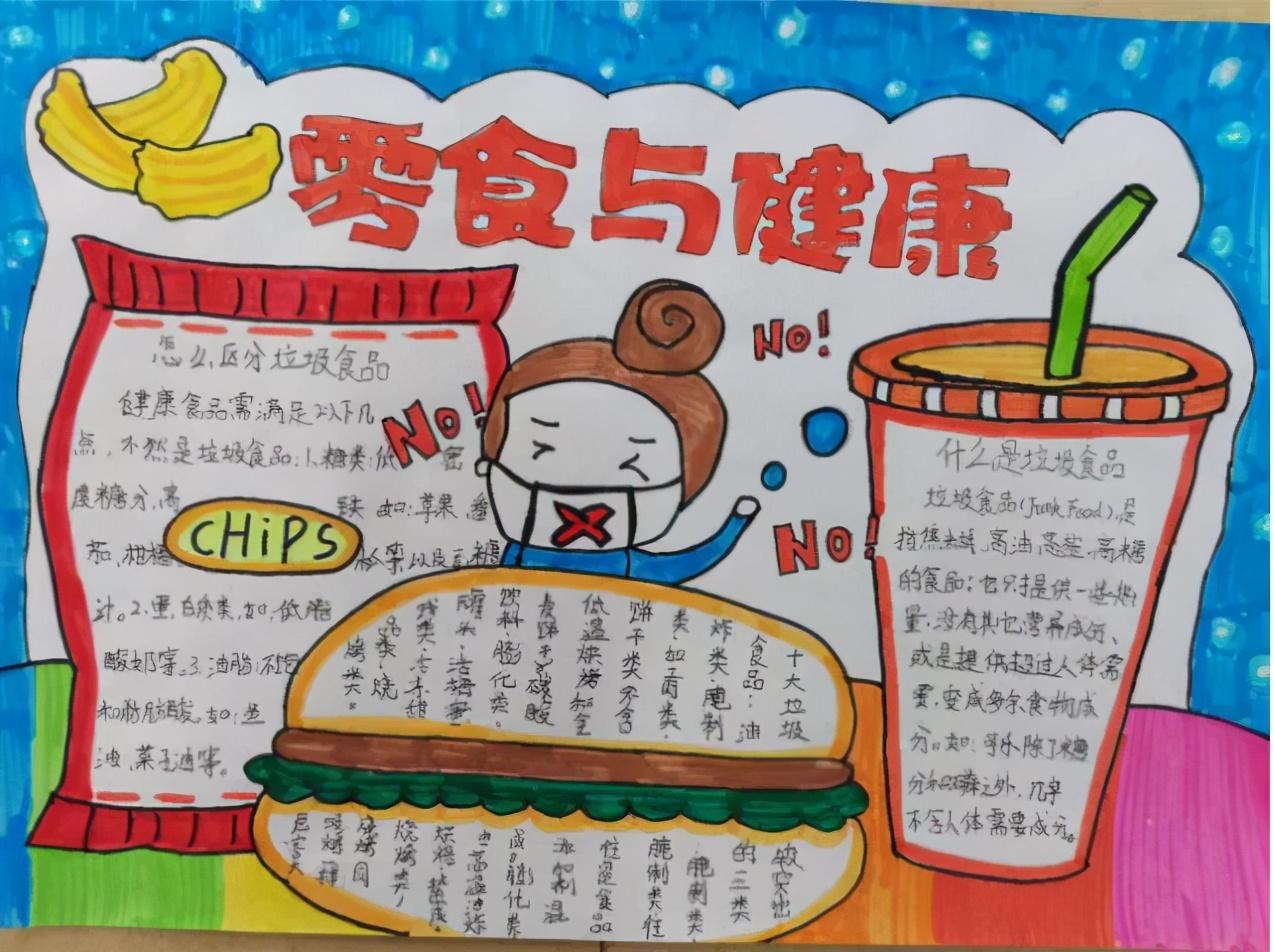 零食与健康
怎么区分垃圾食品
健康食品需满足以下几
点,不然是垃圾食品:1.糖类:低 密
度糖分,高
CHiPS
铁 如:苹果、番
茄、柑橘 以及豆 糖
汁。2.蛋白质类,如,低脂
酸奶等.3.油脂:不饱
和脂肪酸,如:
油,菜子油等。
No!
No!
No!
什么是垃圾食品
垃圾食品(Junk Food),是
指 高油、高盐、高糖
的食品;它只提供一些热
量,没有其它营养成分、
或是提供超过人体需
要,变成多余食物成
分。如:可乐除了糖
分和 之外,几乎
不含人体需要成分。
十大垃圾
食品:油
炸类、腌制
类、加工肉类、
饼干类(不含
低温烘烤和全
麦饼干)、碳酸
饮料、膨化类。
罐头、话梅蜜
饯类、冷冻甜
品类、烧
烤类。
较突出
的三类
腌制类
腌制类往
往是食品
添加剂混
成,膨化类
由高温油炸
烘焙
烧烤类